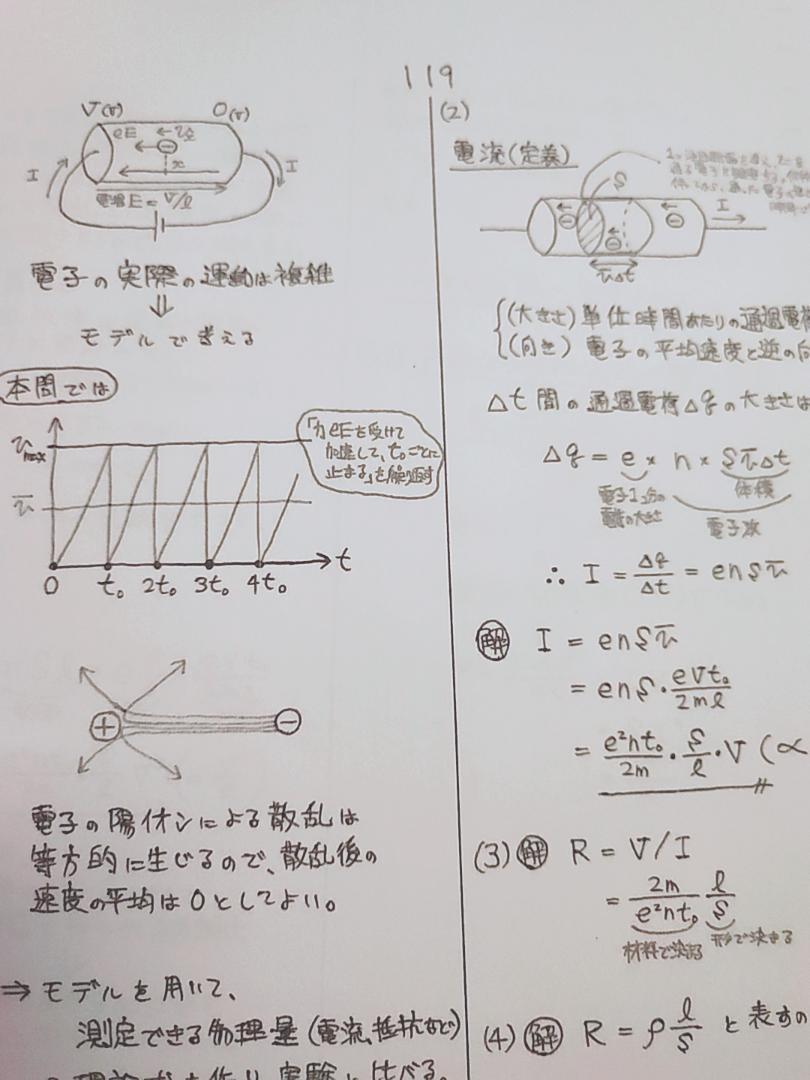 119
V(V)
O(V)
eE
v
x
I
I
電場E=V/l
電子の実際の運動は複雑
⇓
モデルで考える
本問では
vmax
v̄
「力eEを受けて
加速して、t₀ごとに
止まる」を繰り返す
0 t₀ 2t₀ 3t₀ 4t₀ t
+ −
電子の陽イオンによる散乱は
等方的に生じるので、散乱後の
速度の平均は0としてよい。
⇒ モデルを用いて、
測定できる物理量(電流、抵抗など)
の理論式を作り、実験と比べる。
(2)
電流(定義)
S
I
v̄Δt
(大きさ) 単位時間あたりの通過電
(向き) 電子の平均速度と逆の向
Δt間の通過電荷Δqの大きさは
Δq = e × n × Sv̄Δt
電子1コの
電荷の大きさ
体積
電子数
∴ I = Δq/Δt = enSv̄
解 I = enSv̄
= enS・eVt₀/2ml
= e²nt₀/2m・S/l・V (∝
(3) 解 R = V/I
= 2m/e²nt₀ l/S
材料で決まる 形で決まる
(4) 解 R = ρ l/S と表すの